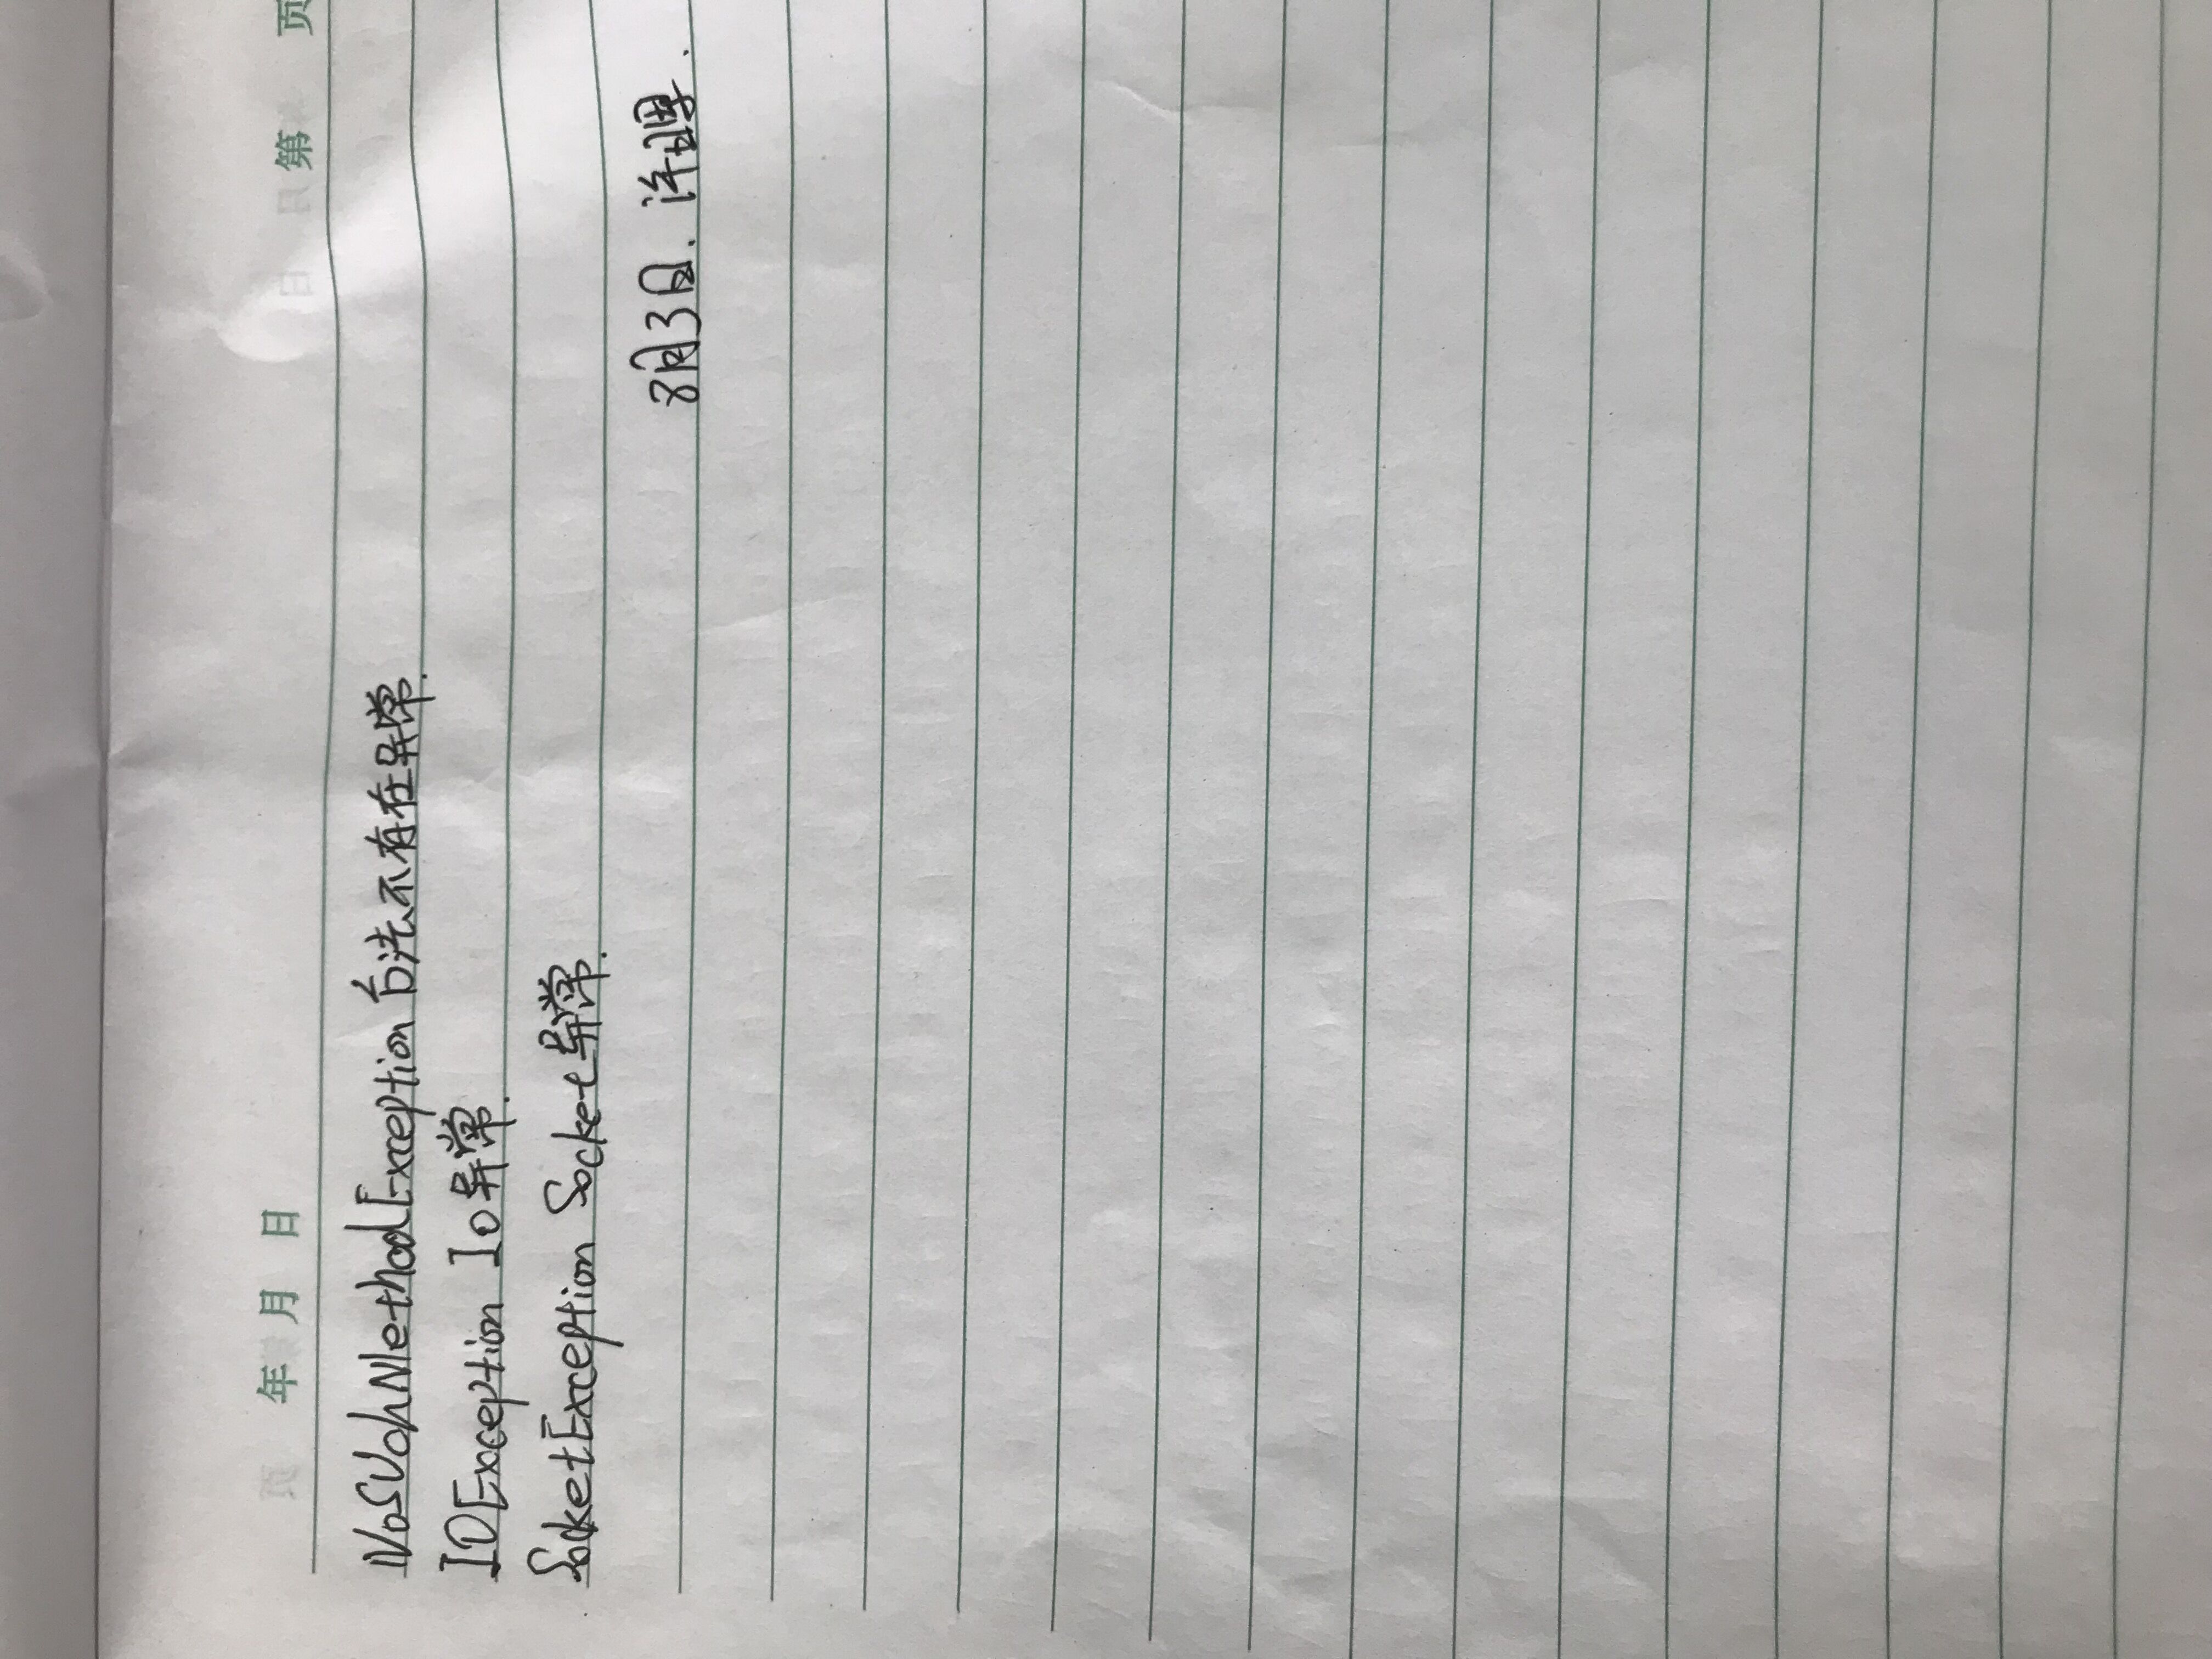 年 月 日 第 页
NoSUchMethodException 台法不存在异常.
IOException Io异常.
SocketException Socket异常.
8月3日. 许